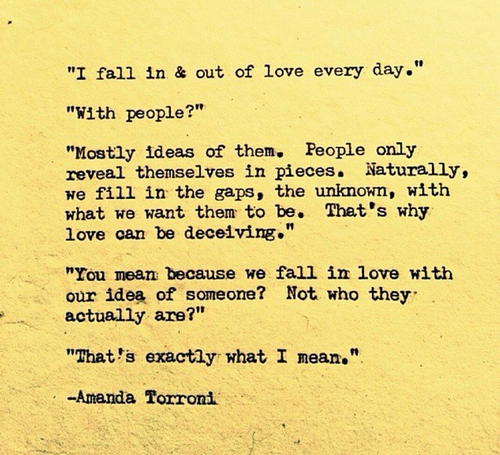 "I fall in & out of love every day."
"With people?"
"Mostly ideas of them.  People only
reveal themselves in pieces.  Naturally,
we fill in the gaps, the unknown, with
what we want them to be.  That's why
love can be deceiving."
"You mean because we fall in love with
our idea of someone?  Not who they
actually are?"
"That's exactly what I mean."
-Amanda Torroni